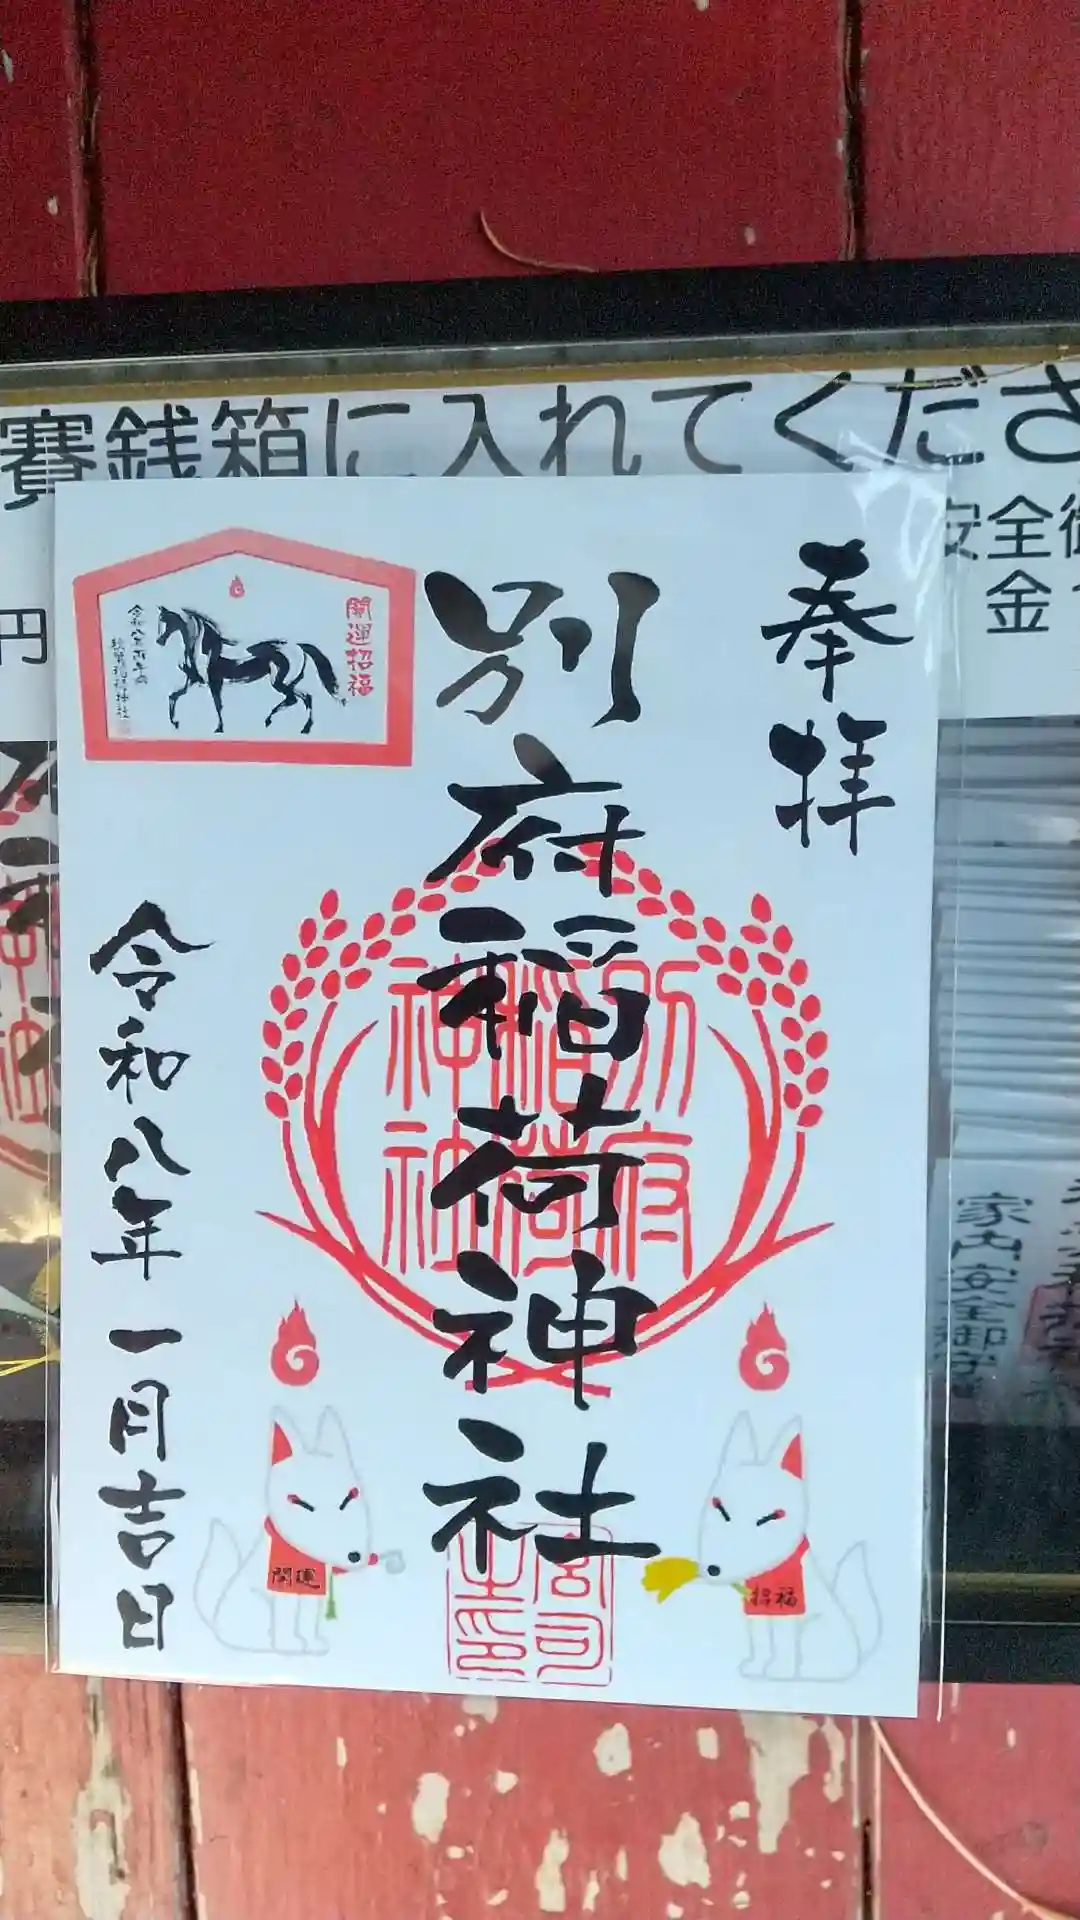 賽銭箱に入れてくださ
安全御
金
円
奉拝
別府稲荷神社
開運招福
令和八年一月吉日
別府
稲荷
神社
開運
招福
宮司
之印
家内安全御守